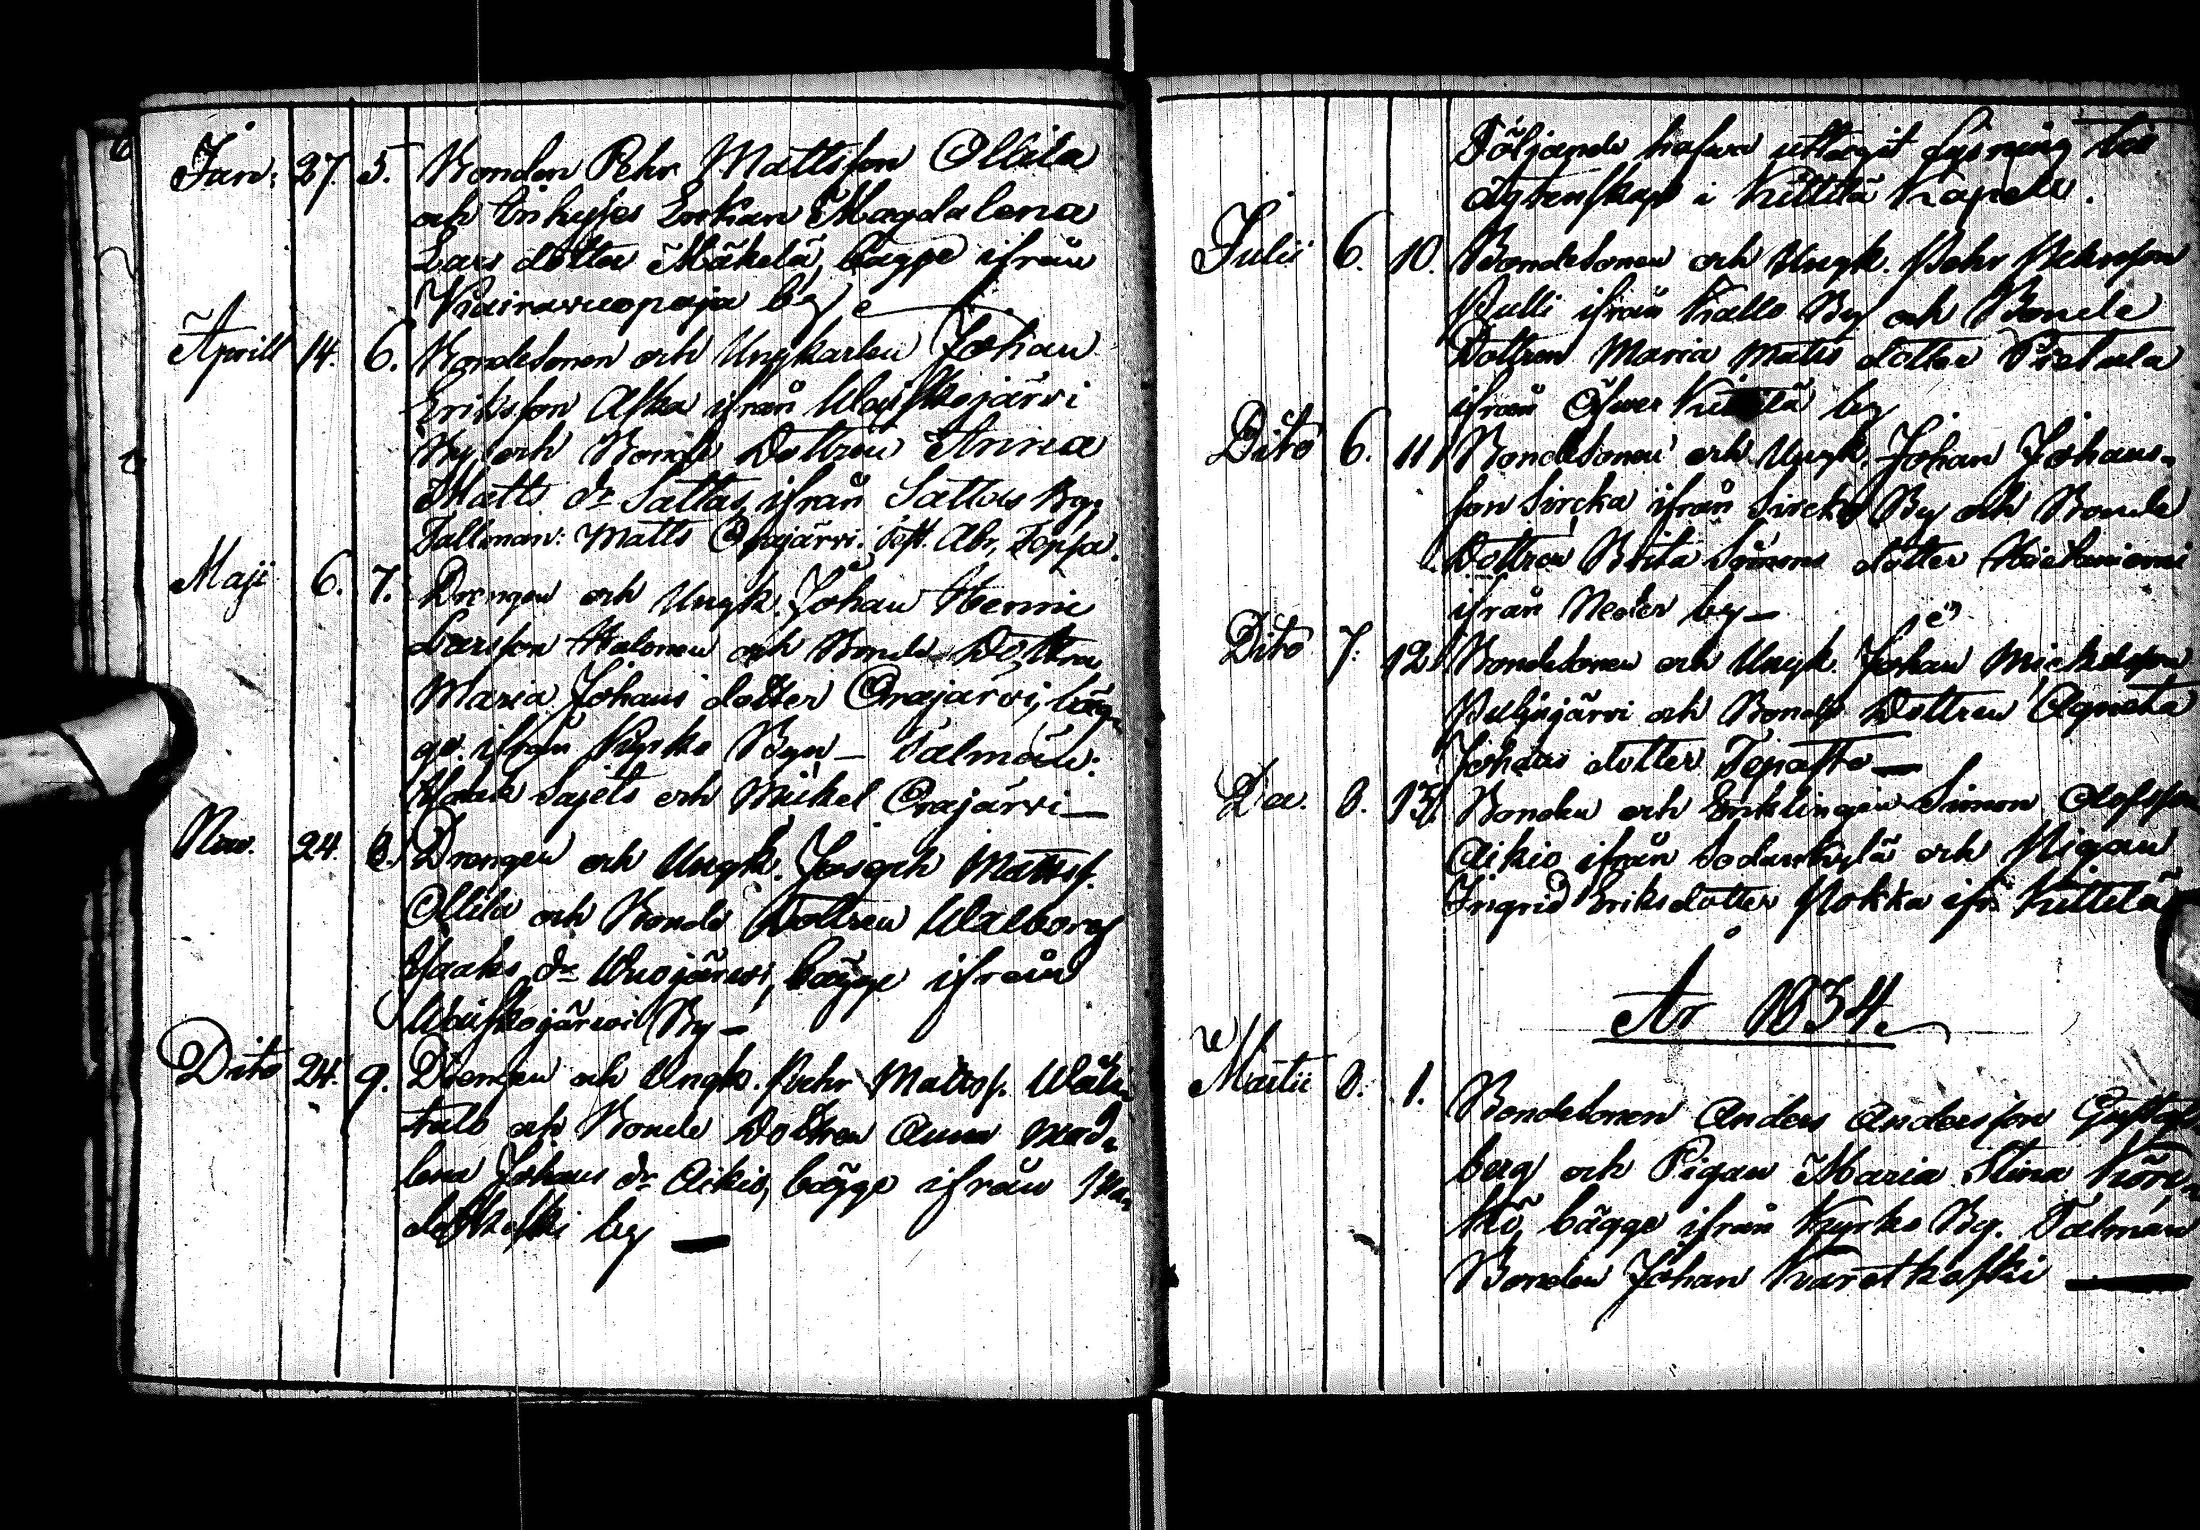 Jan: 27. 5. Bonden Pehr Mattsson Ollila
och Enkan Magdalena
Lars dotter Mäkelä, bägge ifrån
Kairavuopaja by
Aprill 14. 6. Bondesonen och Ungkarlen Johan
Eriksson Aska ifrån Uhiskojärvi
By och Bonde Dottren Anna
Matts dr Sattas ifrån Sattas By,
Tallman: Matts Orajärvi. Abr.
Maji 6. 7. Drengen och Ungk. Johan Henric
Larsson Halonen och Bonde Dottren
Maria Johans dotter Orajärvi, bäg-
ge ifrån Kyrko Byn – Talmän:
Isaak Sajets och Mickel Orajärvi –
Nov. 24. 8. Drengen och Ungk. Joseph Mattss.
Ollila och Bonde Dottren Walborg
Isaks dr Wuojärwi, bägge ifrån
Uhiskojärwi By –
Dito 24. 9. Drengen och Ungk. Pehr Mattss.
talo och Bonde Dottren Anna Mada-
lena Johans dr Aikio, bägge ifrån
by —
Följande hafva uttagit Lysning till
Ägtenskap i Kittilä Kapell.
Julii 6. 10. Bondesonen och Ungk. Pehr Pehrsson
Pulli ifrån Kallo By och Bonde
Dottren Maria Matts dotter
ifrån Öfver Kittilä by
Dito 6. 11 Bondesonen och Ungk. Johan Johans-
son Sircka ifrån Sircka By och Bonde
Dottren Brita Simons dotter Hietaniemi
ifrån Neder by –
Dito 7. 12. Bondesonen och Ungk. Johan Mickelsson
Puljujärvi och Bonde Dottren Agneta
Johans dotter Tepasto —
De. 8. 13. Bonden och Enklingen Simon Olofsson
Aikio ifrån Sodankylä och Pigan
Ingrid Eriksdotter Nokka ifr. Kittilä
År 1834.
Martii 8. 1. Bondesonen Anders Andersson Gustafs
berg och Pigan Maria Stina
bägge ifrån Kyrko By. Talman
Bonden Johan Kvarstkoski —